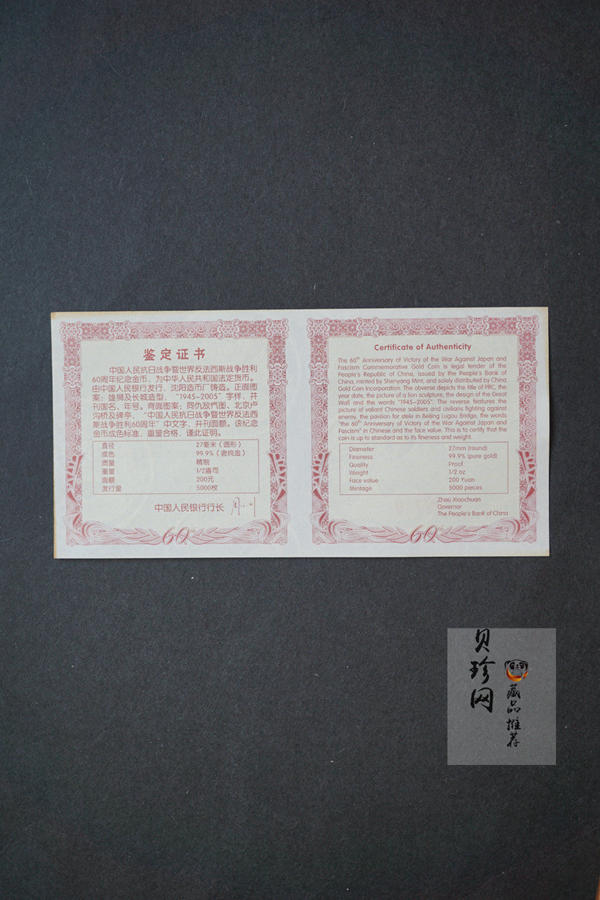 鉴定证书
中国人民抗日战争暨世界反法西斯战争胜利
60周年纪念金币，为中华人民共和国法定货币。
由中国人民银行发行，沈阳造币厂铸造。正面图
案：雄狮及长城造型，“1945-2005”字样，并
刊国名、年号。背面图案：同仇敌忾图、北京卢
沟桥及碑亭，“中国人民抗日战争暨世界反法西
斯战争胜利60周年”中文字，并刊面额。该纪念
金币成色标准、重量合格，谨此证明。
直径 27毫米（圆形）
成色 99.9%（壹纯金）
质量 精制
重量 1/2盎司
面额 200元
发行量 5000枚
中国人民银行行长
60
Certificate of Authenticity
The 60th Anniversary of Victory of the War Against Japan and
Fascism Commemorative Gold Coin is legal tender of the
People's Republic of China, issued by the People's Bank of
China, minted by Shenyang Mint, and solely distributed by China
Gold Coin Incorporation. The obverse depicts the title of PRC, the
year date, the picture of a lion sculpture, the design of the Great
Wall and the words "1945-2005". The reverse features the
picture of valiant Chinese soldiers and civilians fighting against
enemy, the pavilion and stele in Beijing Lugou Bridge, the words
"the 60th Anniversary of Victory of the War Against Japan and
Fascism" in Chinese and the face value. This is to certify that the
coin is up to standard as to its fineness and weight.
Diameter 27mm (round)
Fineness 99.9% (pure gold)
Quality Proof
Weight 1/2 oz
Face value 200 Yuan
Mintage 5000 pieces
Zhou Xiaochuan
Governor
The People's Bank of China
60
贝珍网
藏品推荐